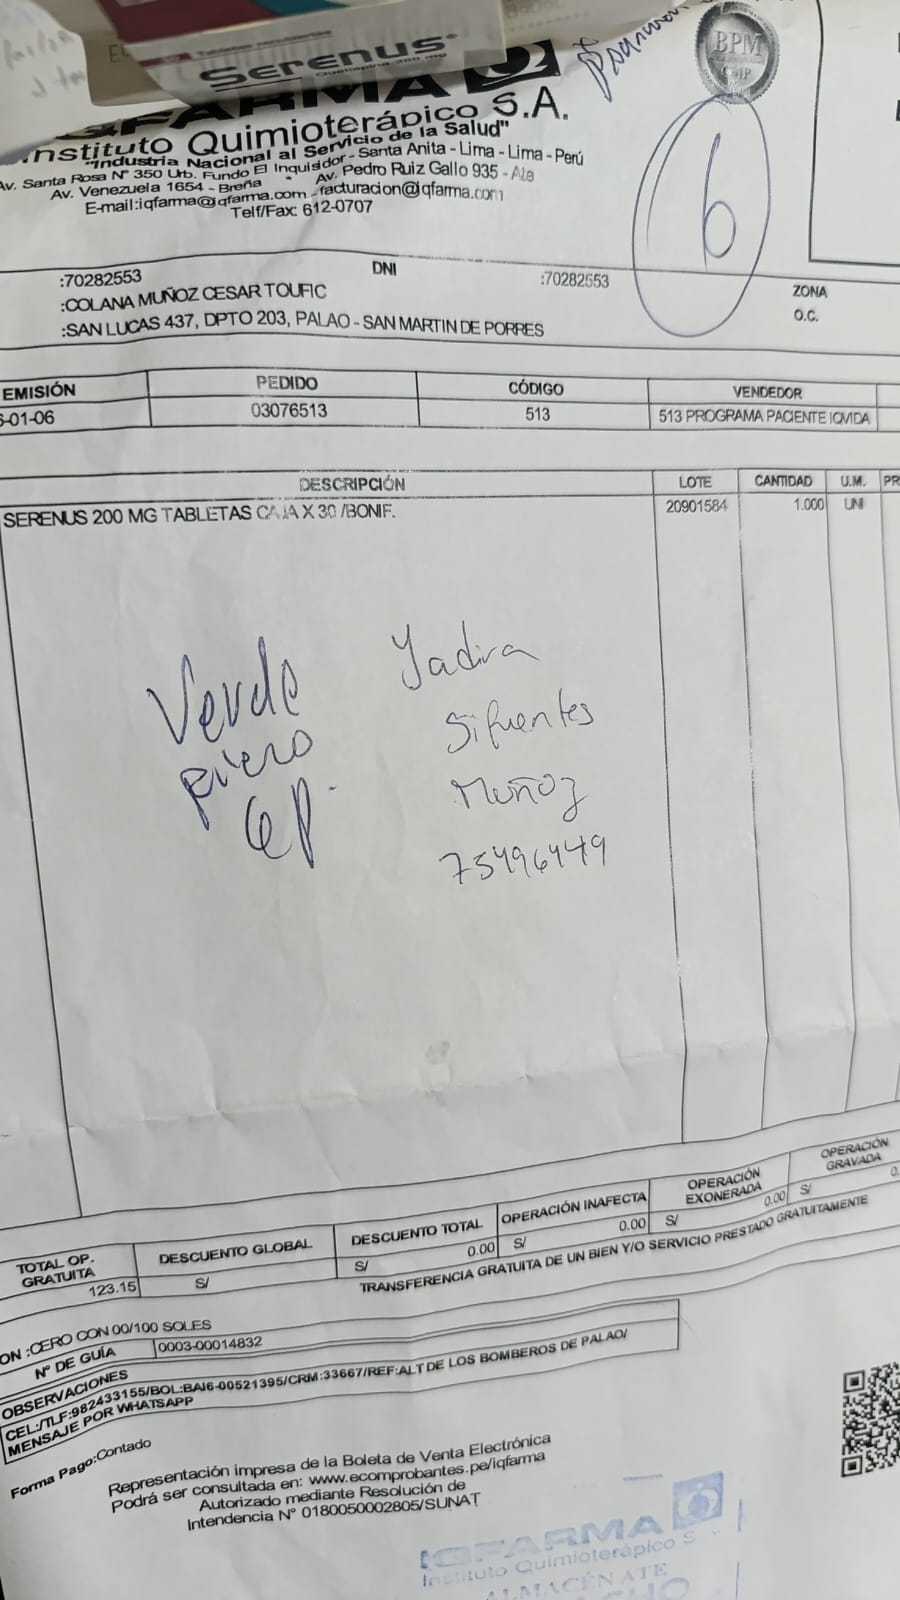 Tabletas recubiertas
Serenus
Quetiapina 200 mg
IQFARMA
Instituto Quimioterápico S.A.
"Industria Nacional al Servicio de la Salud"
Av. Santa Rosa N° 350 Urb. Fundo El Inquisidor - Santa Anita - Lima - Lima - Perú
Av. Venezuela 1654 - Breña * Av. Pedro Ruiz Gallo 935 - Ate
E-mail:iqfarma@iqfarma.com - facturacion@iqfarma.com
Telf/Fax: 612-0707
BPM
6
:70282553 DNI :70282553
:COLANA MUÑOZ CESAR TOUFIC
ZONA
:SAN LUCAS 437, DPTO 203, PALAO - SAN MARTIN DE PORRES
O.C.
EMISIÓN PEDIDO CÓDIGO VENDEDOR
6-01-06 03076513 513 513 PROGRAMA PACIENTE IQVIDA
DESCRIPCIÓN LOTE CANTIDAD U.M. PR
SERENUS 200 MG TABLETAS CAJA X 30 /BONIF. 20901584 1.000 UNI
Verde
piero
6P.
Yadira
Sifuentes
Muñoz
75496449
TOTAL OP. GRATUITA DESCUENTO GLOBAL DESCUENTO TOTAL OPERACIÓN INAFECTA OPERACIÓN EXONERADA OPERACIÓN GRAVADA
123.15 S/ S/ 0.00 S/ 0.00 S/ 0.00 S/ 0.
TRANSFERENCIA GRATUITA DE UN BIEN Y/O SERVICIO PRESTADO GRATUITAMENTE
ON :CERO CON 00/100 SOLES
N° DE GUÍA 0003-00014832
OBSERVACIONES
CEL:/TLF:982433155/BOL:BAI6-00521395/CRM:33667/REF:ALT DE LOS BOMBEROS DE PALAO/
MENSAJE POR WHATSAPP
Forma Pago:Contado
Representación impresa de la Boleta de Venta Electrónica
Podrá ser consultada en: www.ecomprobantes.pe/iqfarma
Autorizado mediante Resolución de
Intendencia N° 0180050002805/SUNAT
IQFARMA
Instituto Quimioterápico S
ALMACÉN ATE